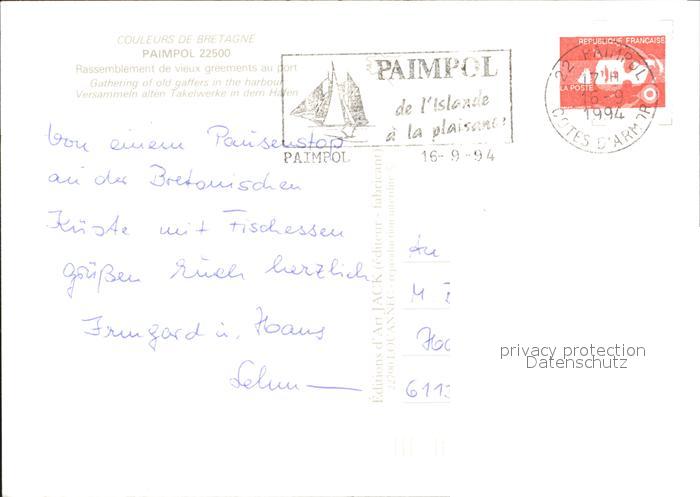 COULEURS DE BRETAGNE
PAIMPOL 22500
Rassemblement de vieux greements au port
Gathering of old gaffers in the harbour
Versammeln alten Takelwerke in dem Hafen
PAIMPOL
de l'Islande
à la plaisance
PAIMPOL 16-9-94
RÉPUBLIQUE FRANÇAISE
LA POSTE
22 PAIMPOL
17H
16-9
1994
COTES D'ARMOR
Von einem Pausenstop
an der Bretonischen
Küste mit Fischessen
grüßen Euch herzlich
Irmgard u. Hans
Editions d'Art JACK (éditeur - fabricant)
22700 LOUANNEC - reproduction interdite
An
M
6113
privacy protection
Datenschutz